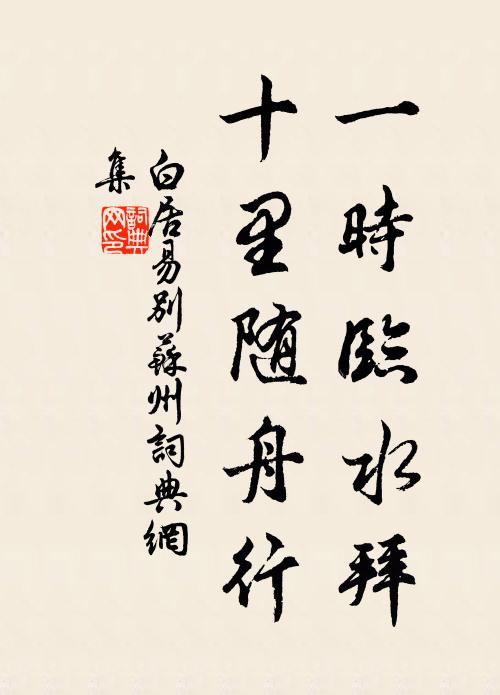 一時臨水拜
十里随舟行
白居易別蘇州詞典網
集
詞典网印